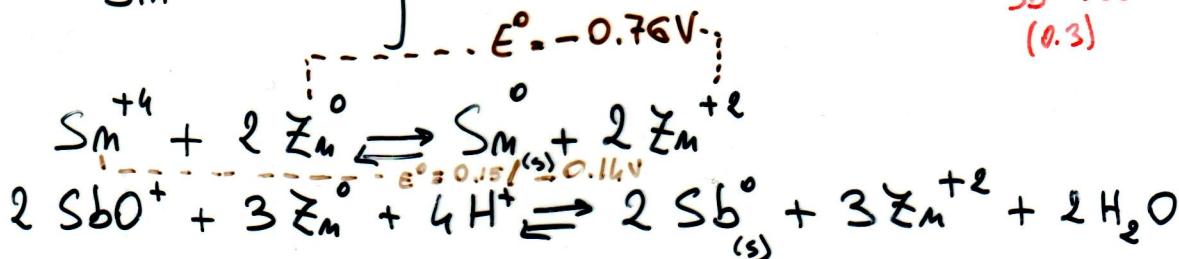 E° = -0.76V
(0.3)
Sn⁺⁴ + 2 Zn⁰ ⇌ Sn⁰(s) + 2 Zn⁺²
E° = 0.15/-0.14V
2 SbO⁺ + 3 Zn⁰ + 4H⁺ ⇌ 2 Sb⁰(s) + 3 Zn⁺² + 2 H₂O